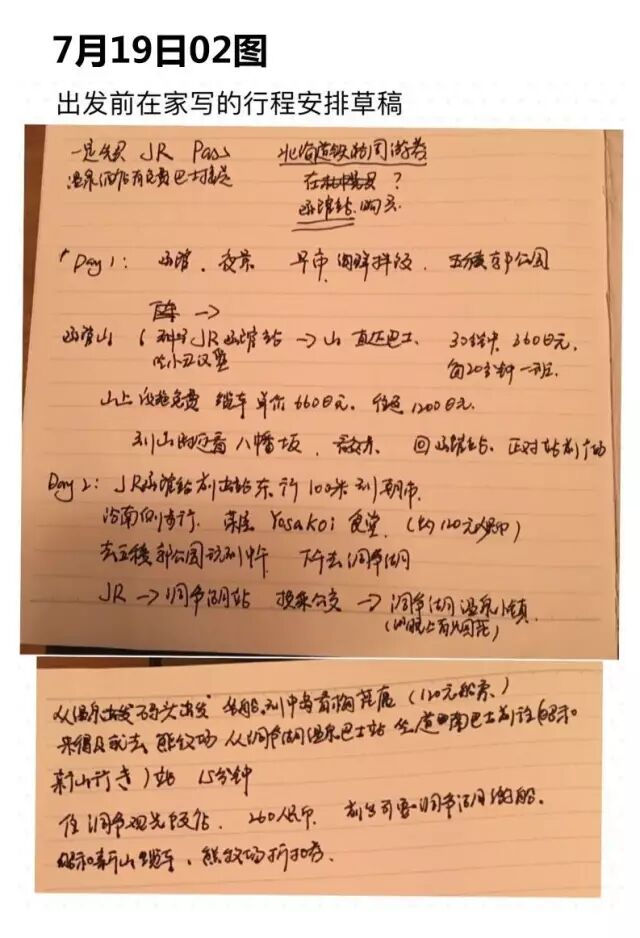 7月19日02图
出发前在家写的行程安排草稿
一定先买 JR Pass 北海道铁路周游券
温泉酒店有免费巴士接送 在札幌买?
函馆站购买
Day 1: 函馆、夜景 早市 海鲜拌饭、五稜郭公园
函馆山 JR函馆站 → 山 直达巴士、30分钟、360日元、
吃小丑汉堡 每20分钟一班
山上 设施免费 缆车单价 660日元、往返1200日元、
到山脚逛看八幡坂、 回函馆站、正对站前广场
Day 2: JR函馆站前出站东行100米到朝市、
沿南侧步行、 Yosakoi 食堂、(约120元人民币)
去五稜郭公园玩到中午 下午去洞爷湖
JR → 洞爷湖站 换乘公交 → 洞爷湖温泉小镇、
(晚上有烟花)
从温泉出发码头出发 坐船到中岛看梅花鹿(120元船票)
来得及就去 熊牧场 从洞爷湖温泉巴士站 坐道南巴士前往(昭和
新山行き)站 15分钟
住洞爷观光饭店、260人民币、 洞爷湖游船、
昭和新山缆车、熊牧场折扣券、